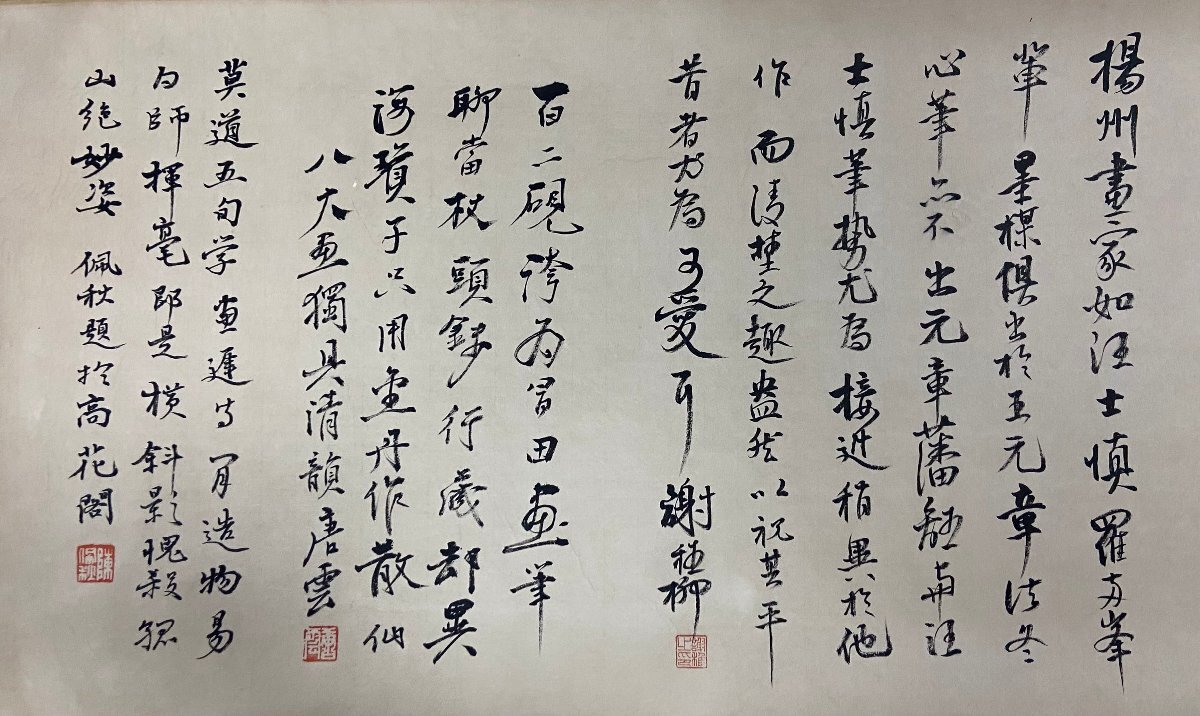 揚州畫家如汪士慎羅兩峯
輩墨楳俱出於王元章法冬
心筆亦不出元章藩籬此與汪
士慎筆勢尤為接近稍異於他
作而淒楚之趣盎然以視其平
昔者尤為可愛耳謝稚柳
百二硯誇為富田畫筆
聊當杖頭錢行藏却異
海貧子只用金丹作散仙
八大画獨具清韻唐雲
莫道五旬学画遲胸间造物易
為師揮毫即是橫斜影愧殺孤
山絶妙姿 佩秋題於高花閣
陳佩秋